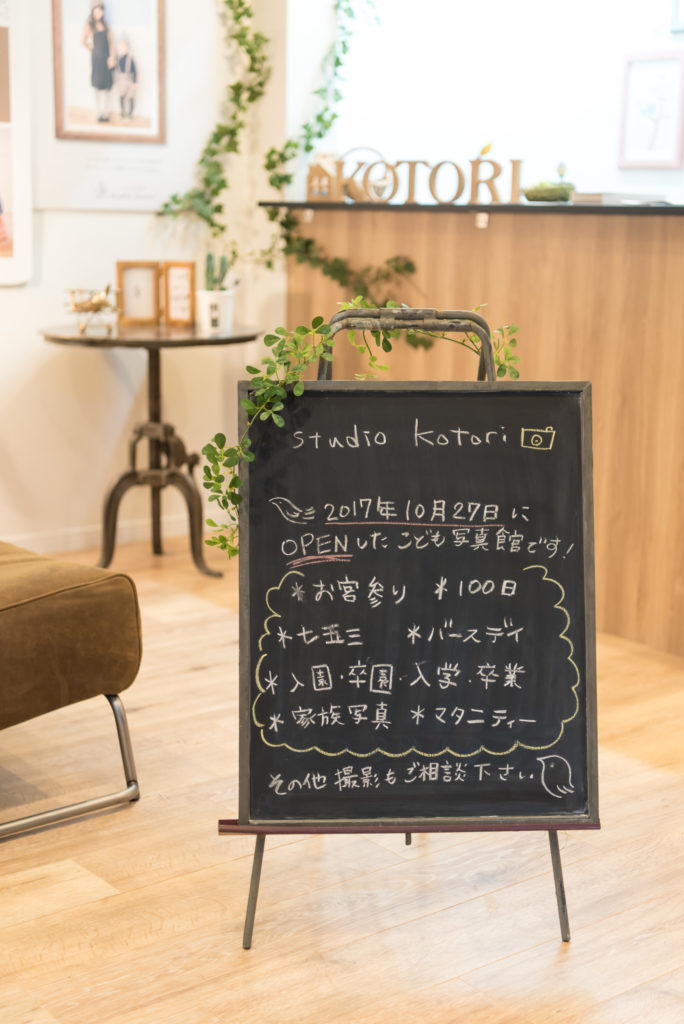 KOTORI
studio kotori
2017年10月27日に
OPENしたこども写真館です!
*お宮参り *100日
*七五三 *バースデイ
*入園・卒園・入学・卒業
*家族写真 *マタニティー
その他撮影もご相談下さい